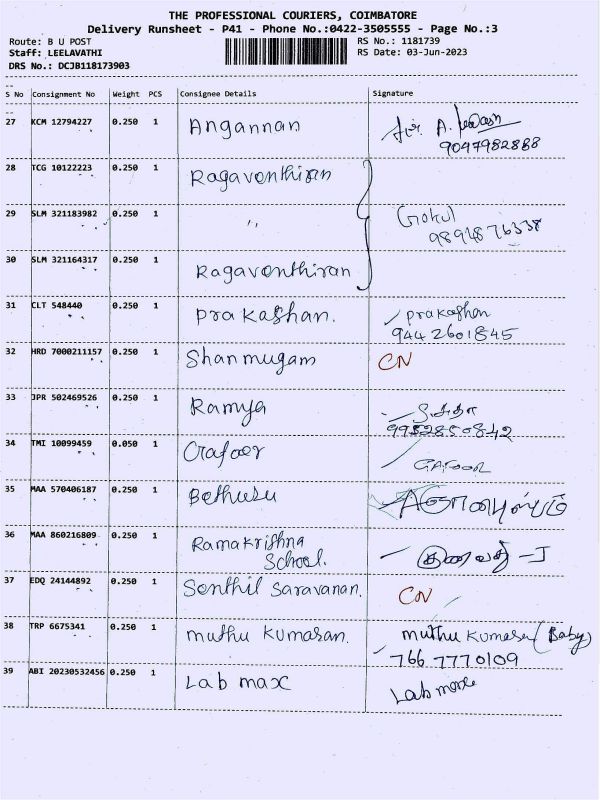 THE PROFESSIONAL COURIERS, COIMBATORE
Delivery Runsheet - P41 - Phone No.:0422-3505555 - Page No.:3
Route: B U POST RS No.: 1181739
Staff: LEELAVATHI RS Date: 03-Jun-2023
DRS No.: DCJB118173903
S No Consignment No Weight PCS Consignee Details Signature
27 KCM 12794227 0.250 1 Angannan
9047982888
28 TCG 10122223 0.250 1 Ragavonthiran
29 SLM 321183982 0.250 1 ,, Gokul
9894876338
30 SLM 321164317 0.250 1 Ragavonthiran
31 CLT 548440 0.250 1 Prakashan. Prakashan
9442601845
32 HRD 7000211157 0.250 1 Shanmugam CN
33 JPR 502469526 0.250 1 Ramya
9952850842
34 TMI 10099459 0.050 1 Gafoer GAFOOR
35 MAA 570406187 0.250 1 Bethusu
36 MAA 860216809 0.250 1 Ramakrishna
School.
37 EDQ 24144892 0.250 1 Senthil Saravanan. CN
38 TRP 6675341 0.250 1 muthu kumaran. muthu kumaran (Baby)
766 7770109
39 ABI 20230532456 0.250 1 Lab max Lab max